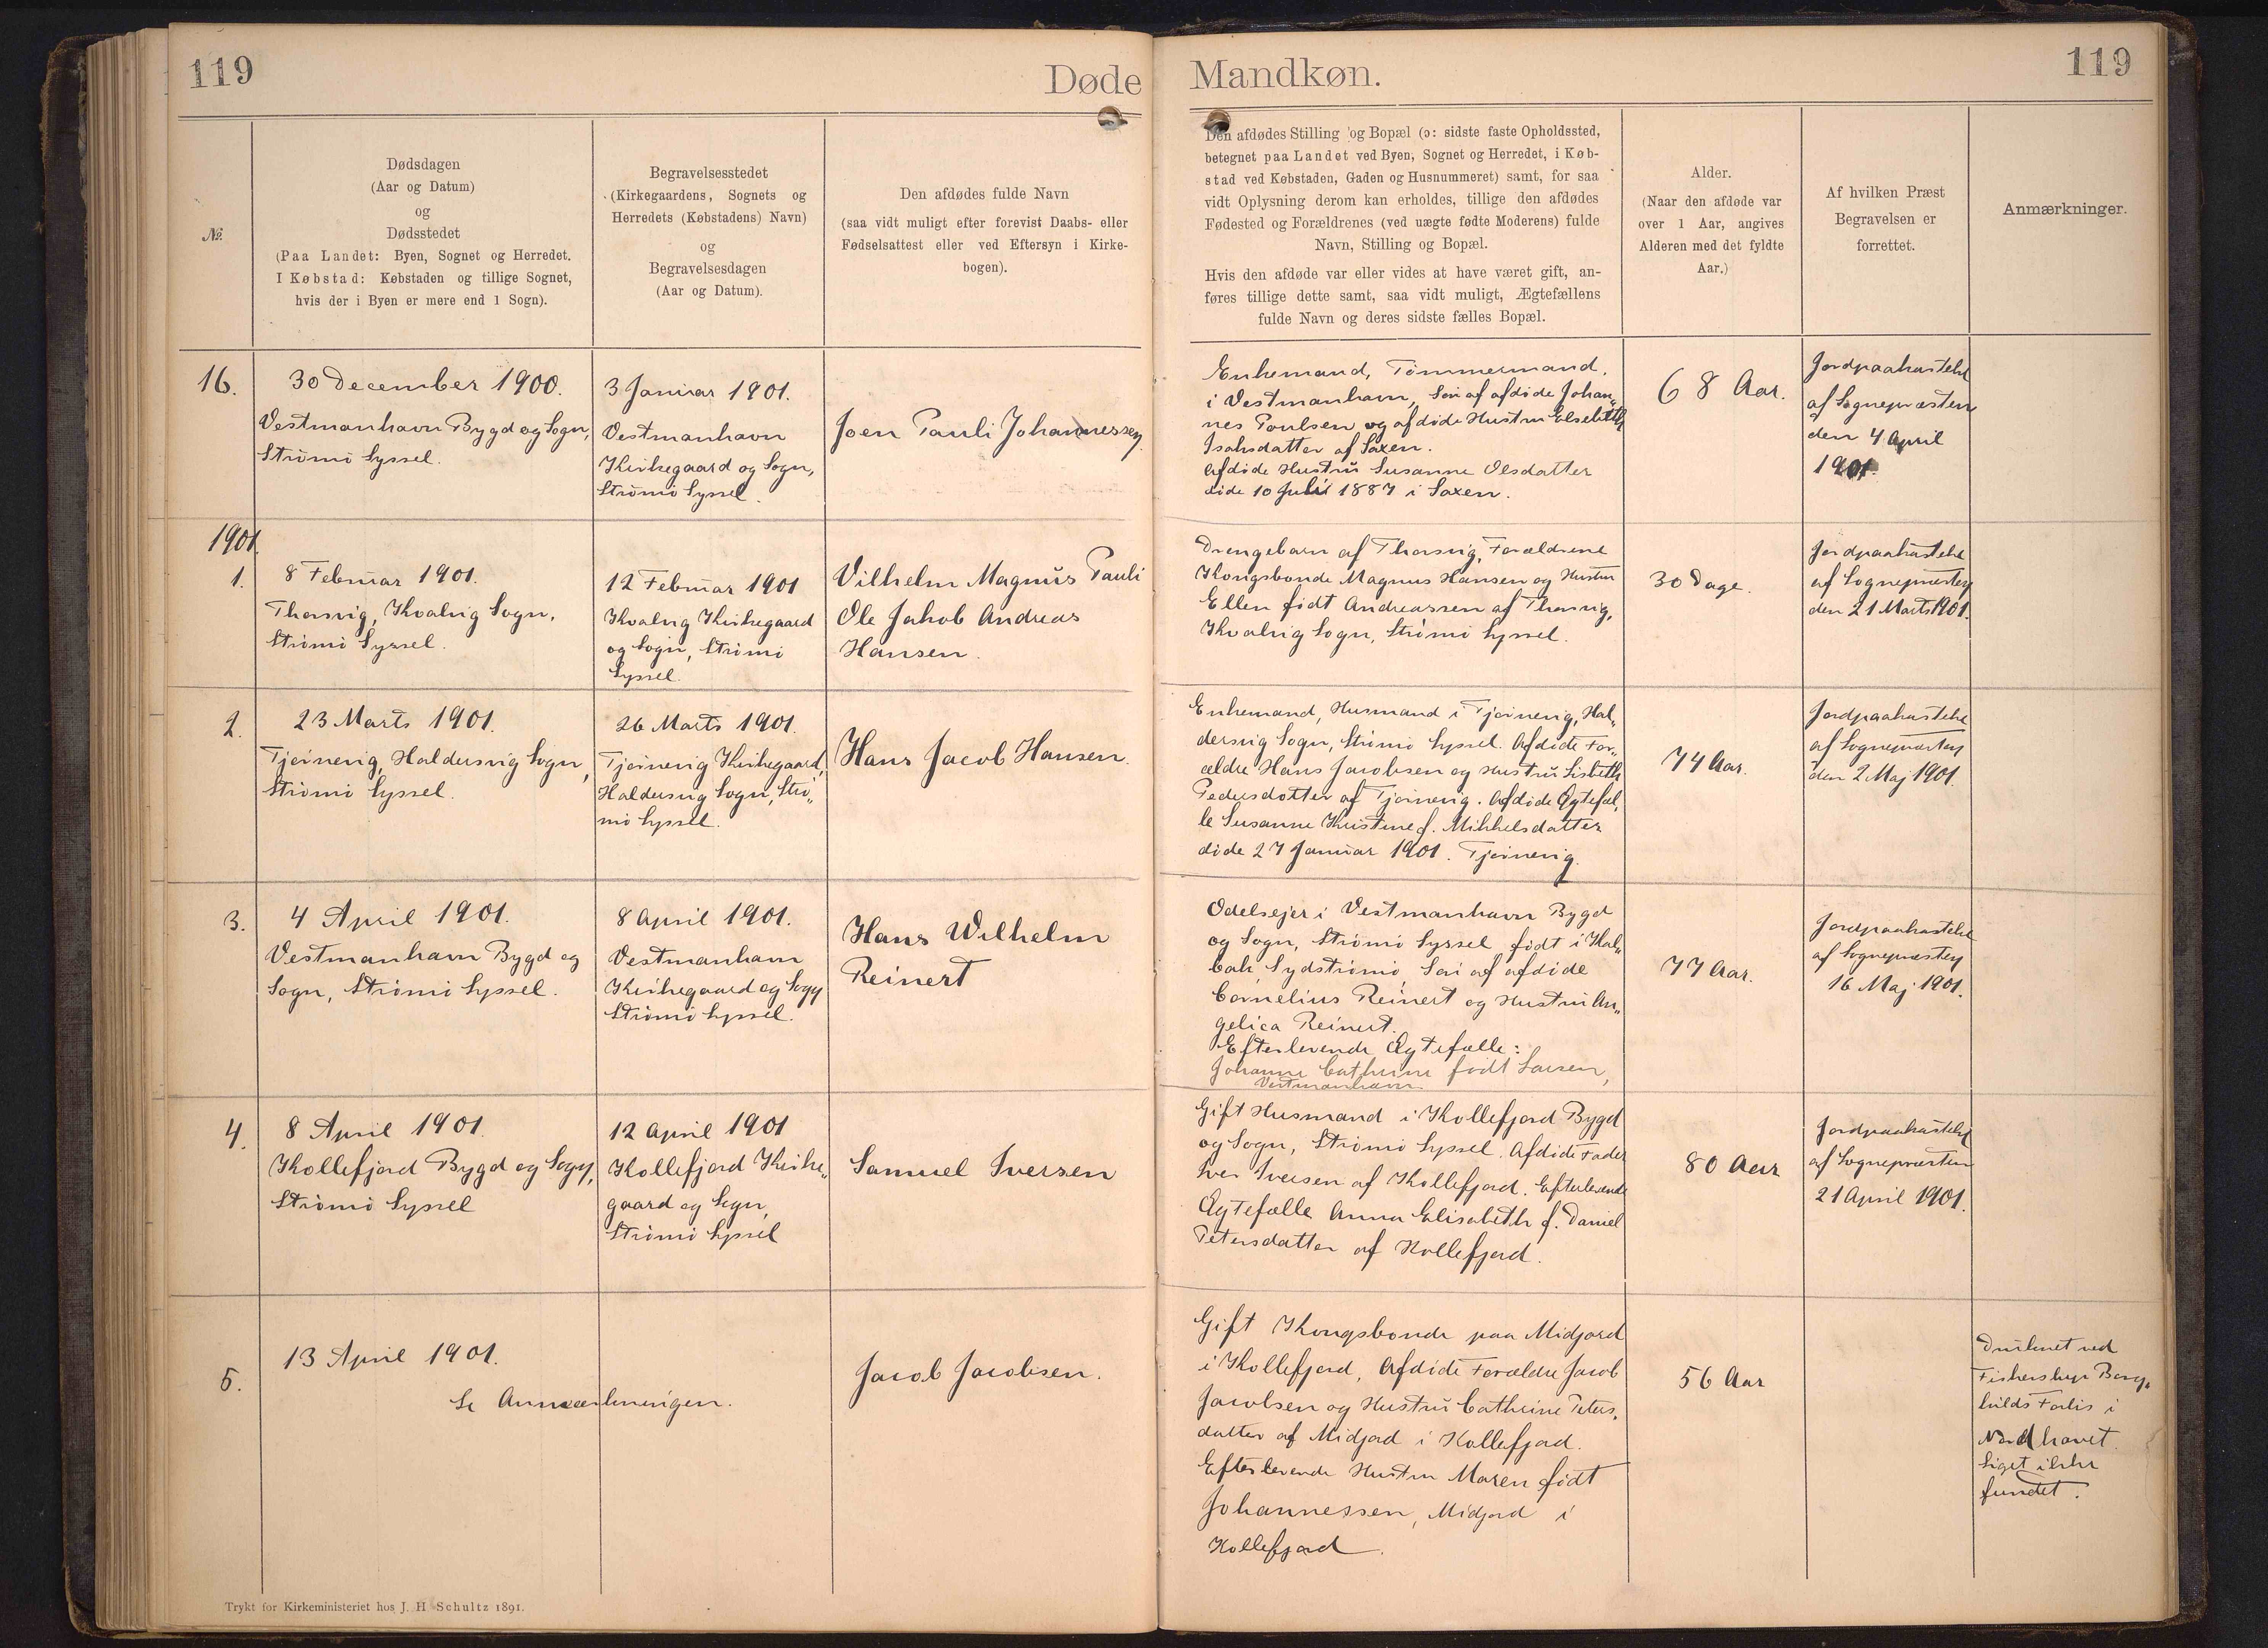 119
Døde
Mandkøn.
119
№.
Dødsdagen
(Aar og Datum)
og
Dødsstedet
(Paa Landet: Byen, Sognet og Herredet.
I Købstad: Købstaden og tillige Sognet,
hvis der i Byen er mere end 1 Sogn).
Begravelsesstedet
(Kirkegaardens, Sognets og
Herredets (Købstadens) Navn)
og
Begravelsesdagen
(Aar og Datum).
Den afdødes fulde Navn
(saa vidt muligt efter forevist Daabs- eller
Fødselsattest eller ved Eftersyn i Kirke-
bogen).
Den afdødes Stilling og Bopæl (ɔ: sidste faste Opholdssted,
betegnet paa Landet ved Byen, Sognet og Herredet, i Køb-
stad ved Købstaden, Gaden og Husnummeret) samt, for saa
vidt Oplysning derom kan erholdes, tillige den afdødes
Fødested og Forældrenes (ved uægte fødte Moderens) fulde
Navn, Stilling og Bopæl.
Hvis den afdøde var eller vides at have været gift, an-
føres tillige dette samt, saa vidt muligt, Ægtefællens
fulde Navn og deres sidste fælles Bopæl.
Alder.
(Naar den afdøde var
over 1 Aar, angives
Alderen med det fyldte
Aar.)
Af hvilken Præst
Begravelsen er
forrettet.
Anmærkninger.
16.
30 December 1900.
Vestmanhavn Bygd og Sogn,
Strömö Syssel.
3 Januar 1901.
Vestmanhavn
Kirkegaard og Sogn,
Strömö Syssel.
Joen Pauli Johannessen
Enkemand, Tömmermand.
i Vestmanhavn, Sön af afdöde Johan„
nes Poulsen og afdöde Hustru Elsebeth
Isaksdatter af Saxen.
Afdöde Hustru Susanne Olsdatter
döde 10 Juli 1887 i Saxen.
68 Aar.
Jordpaakastelse
af Sognepræsten
den 4 April
1901.
1901
1.
8 Februar 1901.
Thorsvig, Kvalvig Sogn,
Strömö Syssel.
12 Februar 1901
Kvalvig Kirkegaard
og Sogn, Strömö
Syssel.
Vilhelm Magnus Pauli
Ole Jakob Andreas
Hansen.
Drengebarn af Thorsvig, Forældrene
Kongsbonde Magnus Hansen og Hustru
Ellen födt Andreassen af Thorsvig,
Kvalvig Sogn, Strömö Syssel.
30 Dage.
Jordpaakastelse
af Sognepræsten
den 21 Marts 1901.
2.
23 Marts 1901.
Tjörnevig, Haldersvig Sogn,
Strömö Syssel.
26 Marts 1901.
Tjörnevig Kirkegaard,
Haldersvig Sogn, Strö„
mö Syssel.
Hans Jacob Hansen.
Enkemand, Husmand i Tjörnevig, Hal„
dersvig Sogn, Strömö Syssel. Afdöde For„
ældre Hans Jacobsen og Hustru Lisbeth
Pedersdatter af Tjörnevig. Afdöde Ægtefæl„
le Susanne Kristine f. Mikkelsdatter
döde 27 Januar 1901. Tjörnevig.
74 Aar.
Jordpaakastelse
af Sognepræsten
den 2 Maj 1901.
3.
4 April 1901.
Vestmanhavn Bygd og
Sogn, Strömö Syssel.
8 April 1901.
Vestmanhavn
Kirkegaard og Sogn
Strömö Syssel.
Hans Wilhelm
Reinert
Odelsejer i Vestmanhavn Bygd
og Sogn, Strömö Syssel födt i Kal„
bak Sydströmö, Sön af afdöde
Cornelius Reinert og Hustru An„
gelica Reinert.
Efterlevende Ægtefælle:
Johanne Cathrine födt Larsen,
Vestmanhavn
77 Aar.
Jordpaakastelse
af Sognepræsten
16 Maj 1901.
4.
8 April 1901.
Kollefjord Bygd og Sogn,
Strömö Syssel
12 April 1901
Kollefjord Kirke„
gaard og Sogn,
Strömö Syssel
Samuel Iversen
Gift Husmand i Kollefjord Bygd
og Sogn, Strömö Syssel. Afdöde Fader
Iver Iversen af Kollefjord. Efterlevende
Ægtefælle Anna Elisabeth f. Daniel
Petersdatter af Kollefjord.
80 Aar
Jordpaakastelse
af Sognepræsten
21 April 1901.
5.
13 April 1901.
Se Anmærkningen.
Jacob Jacobsen.
Gift Kongsbonde paa Midjord
i Kollefjord, Afdöde Forældre Jacob
Jacobsen og Hustru Cathrine Peters„
datter af Midjord i Kollefjord.
Efterlevende Hustru Maren födt
Johannessen, Midjord i
Kollefjord.
56 Aar
Druknet ved
Fiskerskip Borg„
hilds Forlis i
Nordhavet.
Liget ikke
fundet.
Trykt for Kirkeministeriet hos J. H. Schultz 1891.